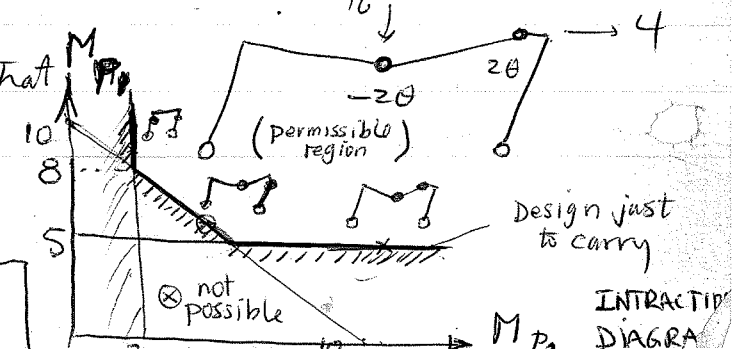 4
2θ
-2θ
that
M
10
8
5
(permissible
region)
Design just
to carry
⊗ not
possible
INTRACTIO
DIAGRA
M P2